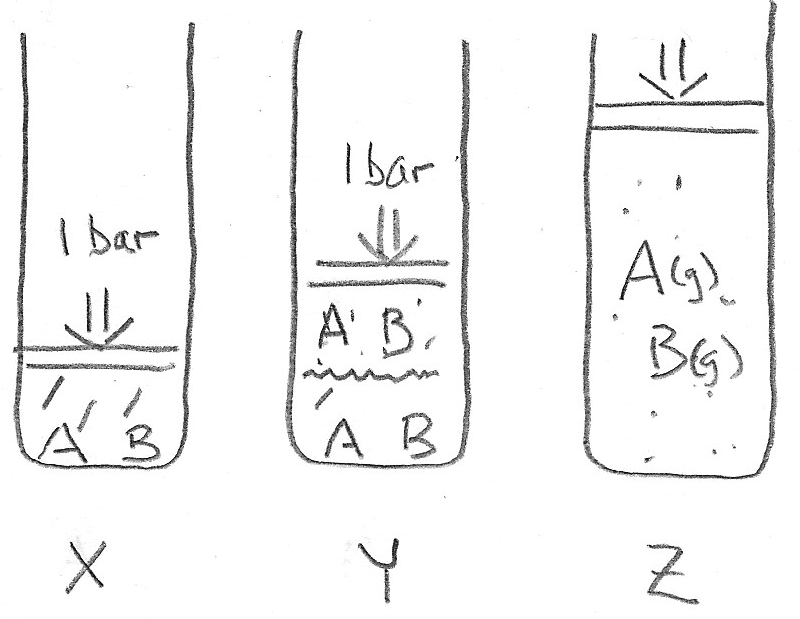 1 bar
A B
X
1 bar
A B
A B
Y
A(g)
B(g)
Z